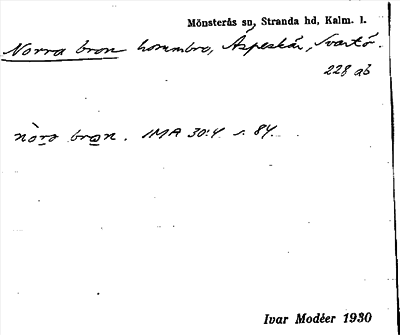 Mönsterås sn, Stranda hd, Kalm. l.
Norra bron hommbro, Äspeskär, Svartö.
228 ab
nòrə bron. IMA 30:4 s. 84.
Ivar Modéer 1930